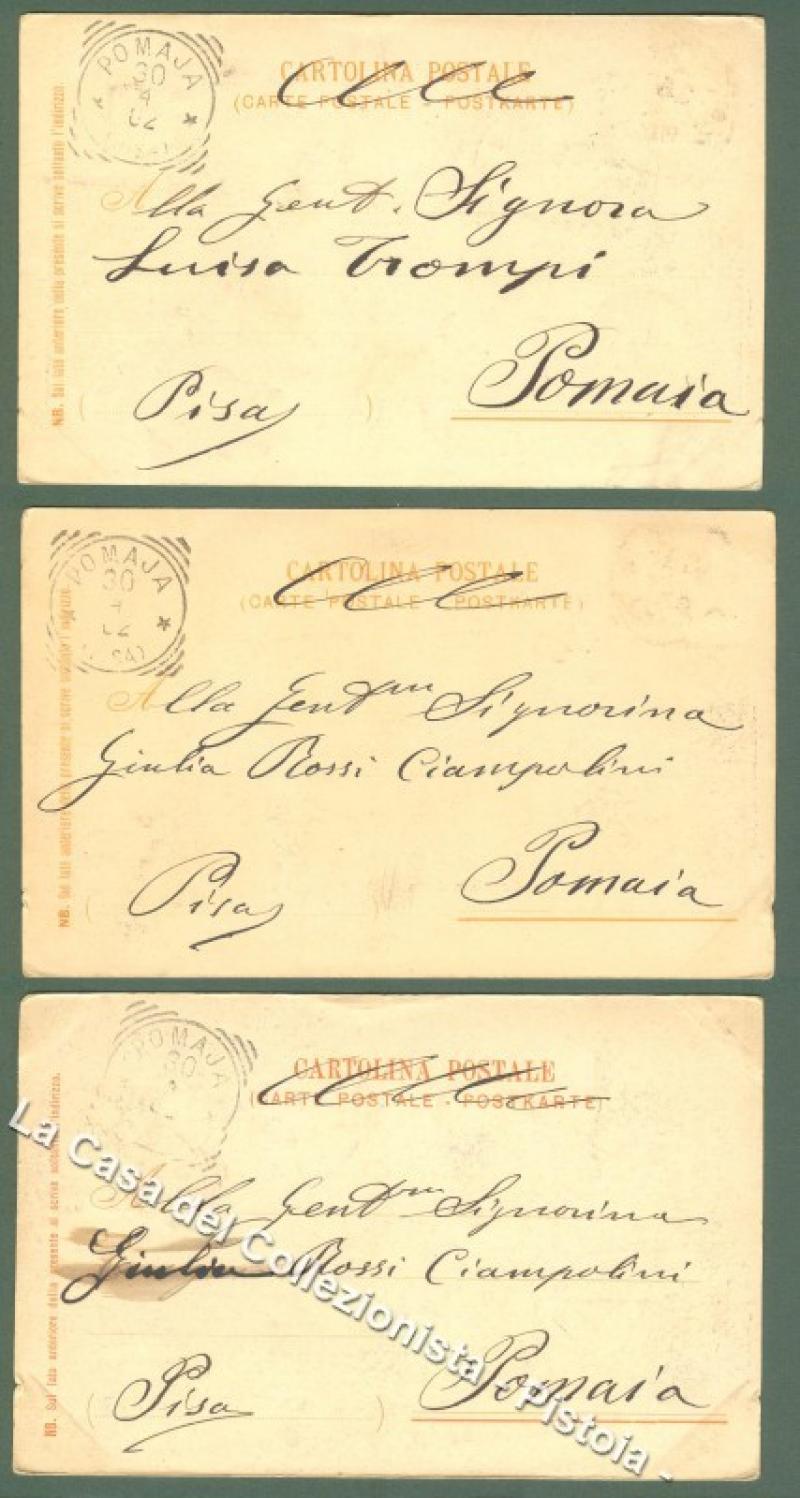 POMAJA
30
4
02
CARTOLINA POSTALE
(CARTE POSTALE - POSTKARTE)
NB. Sul lato anteriore della presente si scrive soltanto l'indirizzo.
Alla Gent. Signora
Luisa Trompi
Pomaia
( Pisa )
POMAJA
30
4
02
CARTOLINA POSTALE
(CARTE POSTALE - POSTKARTE)
NB. Sul lato anteriore della presente si scrive soltanto l'indirizzo.
Alla Gentma Signorina
Giulia Rossi Ciampolini
Pomaia
( Pisa )
POMAJA
30
CARTOLINA POSTALE
(CARTE POSTALE - POSTKARTE)
NB. Sul lato anteriore della presente si scrive soltanto l'indirizzo.
Alla Gentma Signorina
Giulia Rossi Ciampolini
Pomaia
( Pisa )
La Casa del Collezionista - Pistoia -